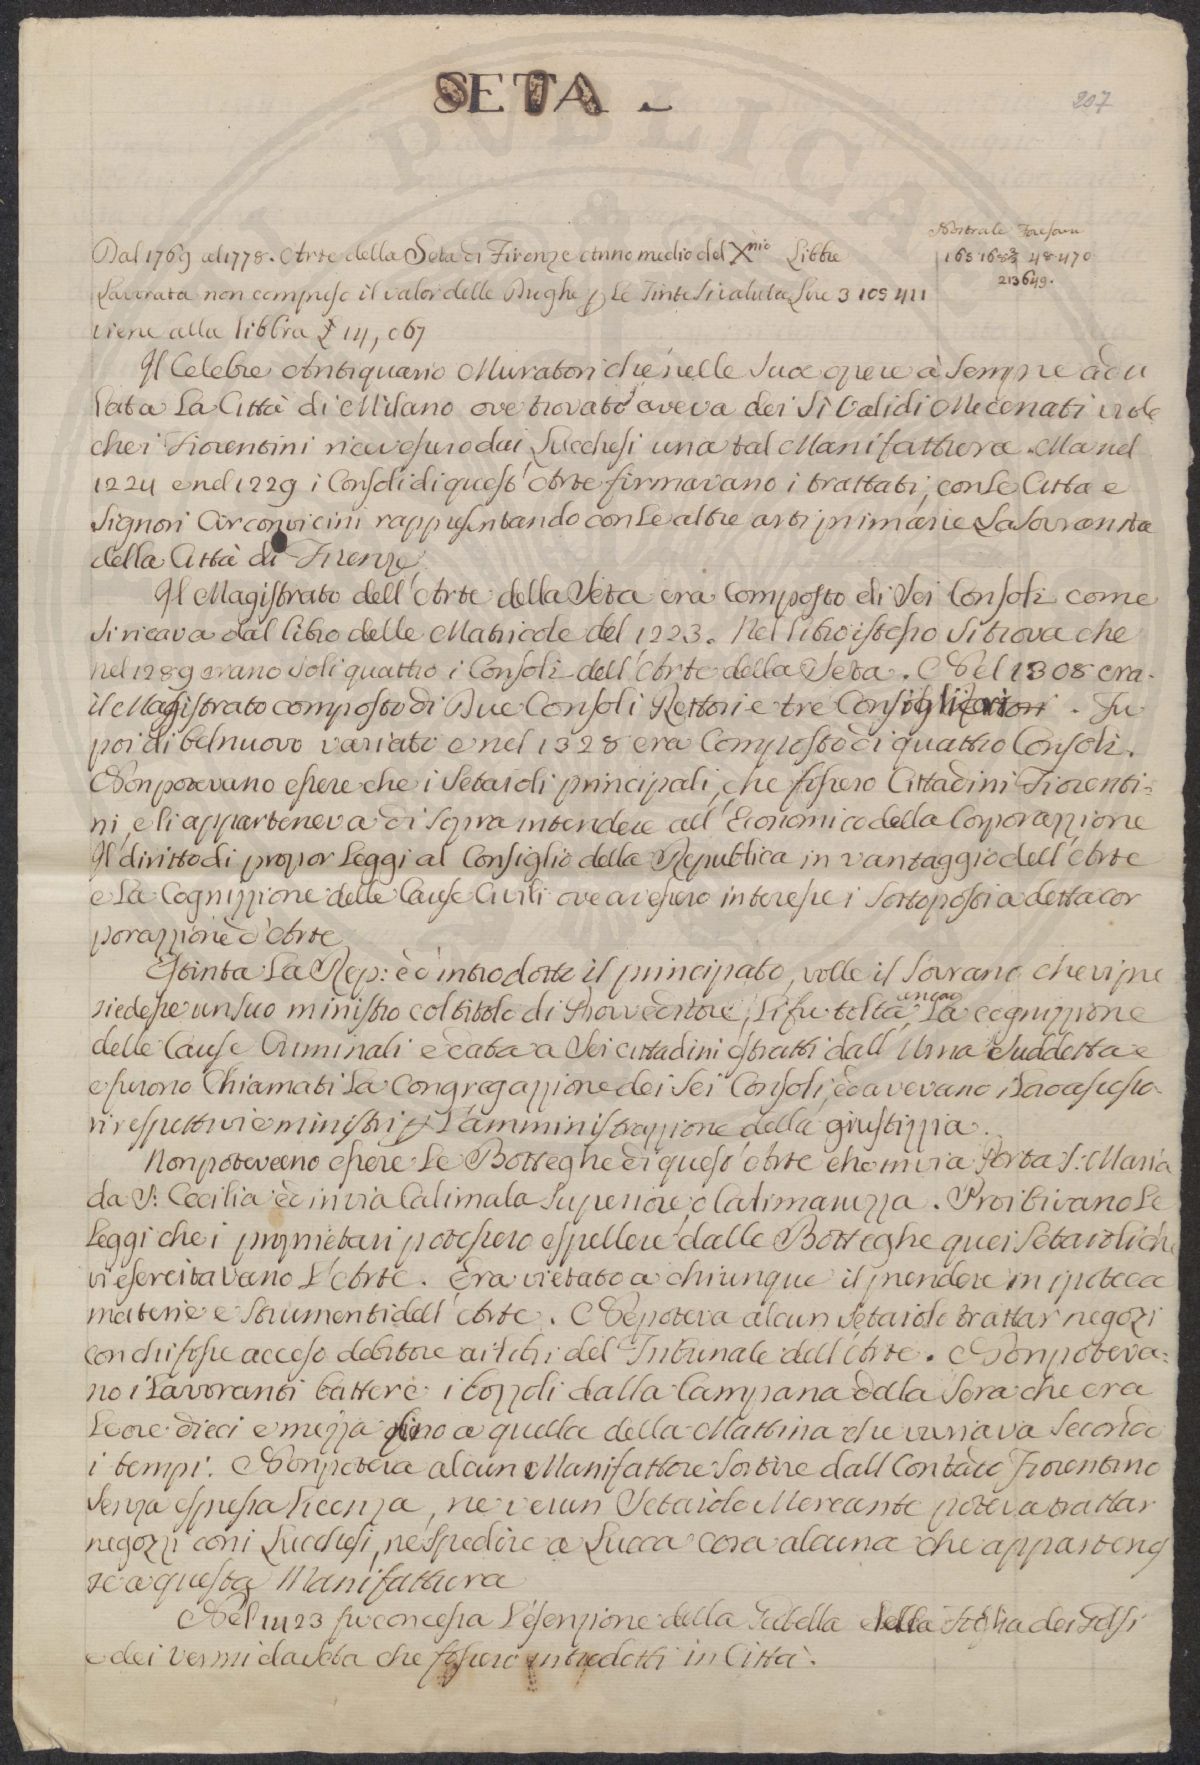 SETA
207
Nostrale Forestiera
Dal 1769 al 1778. Arte della Seta di Firenze Anno medio del Xnio Libbre 48470
213649.
Lavorata non compreso il valor delle Pughe p le Tinte Si valuta Lire 3105411
viene alla libbra £ 14,067
Il Celebre Antiquario Muratori che nelle Sue opere à Sempre adu
lata La Città di Milano ove trovato aveva dei Sì Validi Mecenati vuole
che i Fiorentini ricevessero dai Lucchesi una tal Manifattura. Ma nel
1224 e nel 1229 i Consoli di quest'Arte firmavano i trattati, con Le Citta e
Signori Circonvicini rappresentando con Le altre arti primarie La Sovranita
della Città di Firenze
Il Magistrato dell'Arte della Seta era Composto di Sei Consoli come
Si ricava dal libro delle Matricole del 1223. Nel libro istesso Si trova che
nel 1289 erano Soli quattro i Consoli dell'Arte della Seta. Nel 1308 era
il Magistrato composto di Due Consoli Rettori e tre Consiglieri. Fu
poi di bel nuovo variato e nel 1328 era Composto di quattro Consoli.
Non potevano essere che i Setaioli principali, che fossero Cittadini Fiorenti=
ni, e li apparteneva di Sopra intendere all'Economico della Corporazzione
Il diritto di propor Leggi al Consiglio della Republica in vantaggio dell'Arte
e La Cognizzione delle Cause Civili ove avessero interesse i Sottoposti a detta cor
porazzione d'Arte
Estinta La Rep: ed introdotto il principato, volle il Sovrano che vi pre
siedesse un suo ministro col titolo di Provveditore, Li fu tolta ancora La cognizzione
delle Cause Criminali e data a Sei cittadini estratti dall'Urna Suddetta e
e furono Chiamati La Congregazzione dei Sei Consoli, ed avevano i Loro assesso-
ri respettivi e ministri p L'amministrazzione della giustizzia.
Non potevano essere Le Botteghe di quest'Arte che in via Porta S: Maria
da S: Cecilia ed in via Calimala Superiore, o Calimaruzza. Proibivano Le
Leggi che i proprietari potessero espellere dalle Botteghe quei Setaioli che
vi esercitavano L'Arte. Era vietato a chiunque il prendere in ipoteca
materie e Strumenti dell'Arte. Ne poteva alcun Setaiolo trattar negozi
con chi fosse acceso debitore ai libri del Tribunale dell'Arte. Non poteva=
no i Lavoranti battere i bozzoli dalla Campana della Sera che era
Le ore dieci e mezza fino a quella della Mattina che variava Secondo
i tempi. Non poteva alcun Manifattore Sortire dall Contado Fiorentino
Senza espressa licenza, ne verun Setaiolo Mercante poteva trattar
negozzi con i Lucchesi, ne Spedire a Lucca cosa alcuna che apparteng
se a questa Manifattura
Nel 1423 fu concessa L'esenzione della Gabella della Foglia dei Gelsi
e dei Vermi da Seta che fossero introdotti in Città.